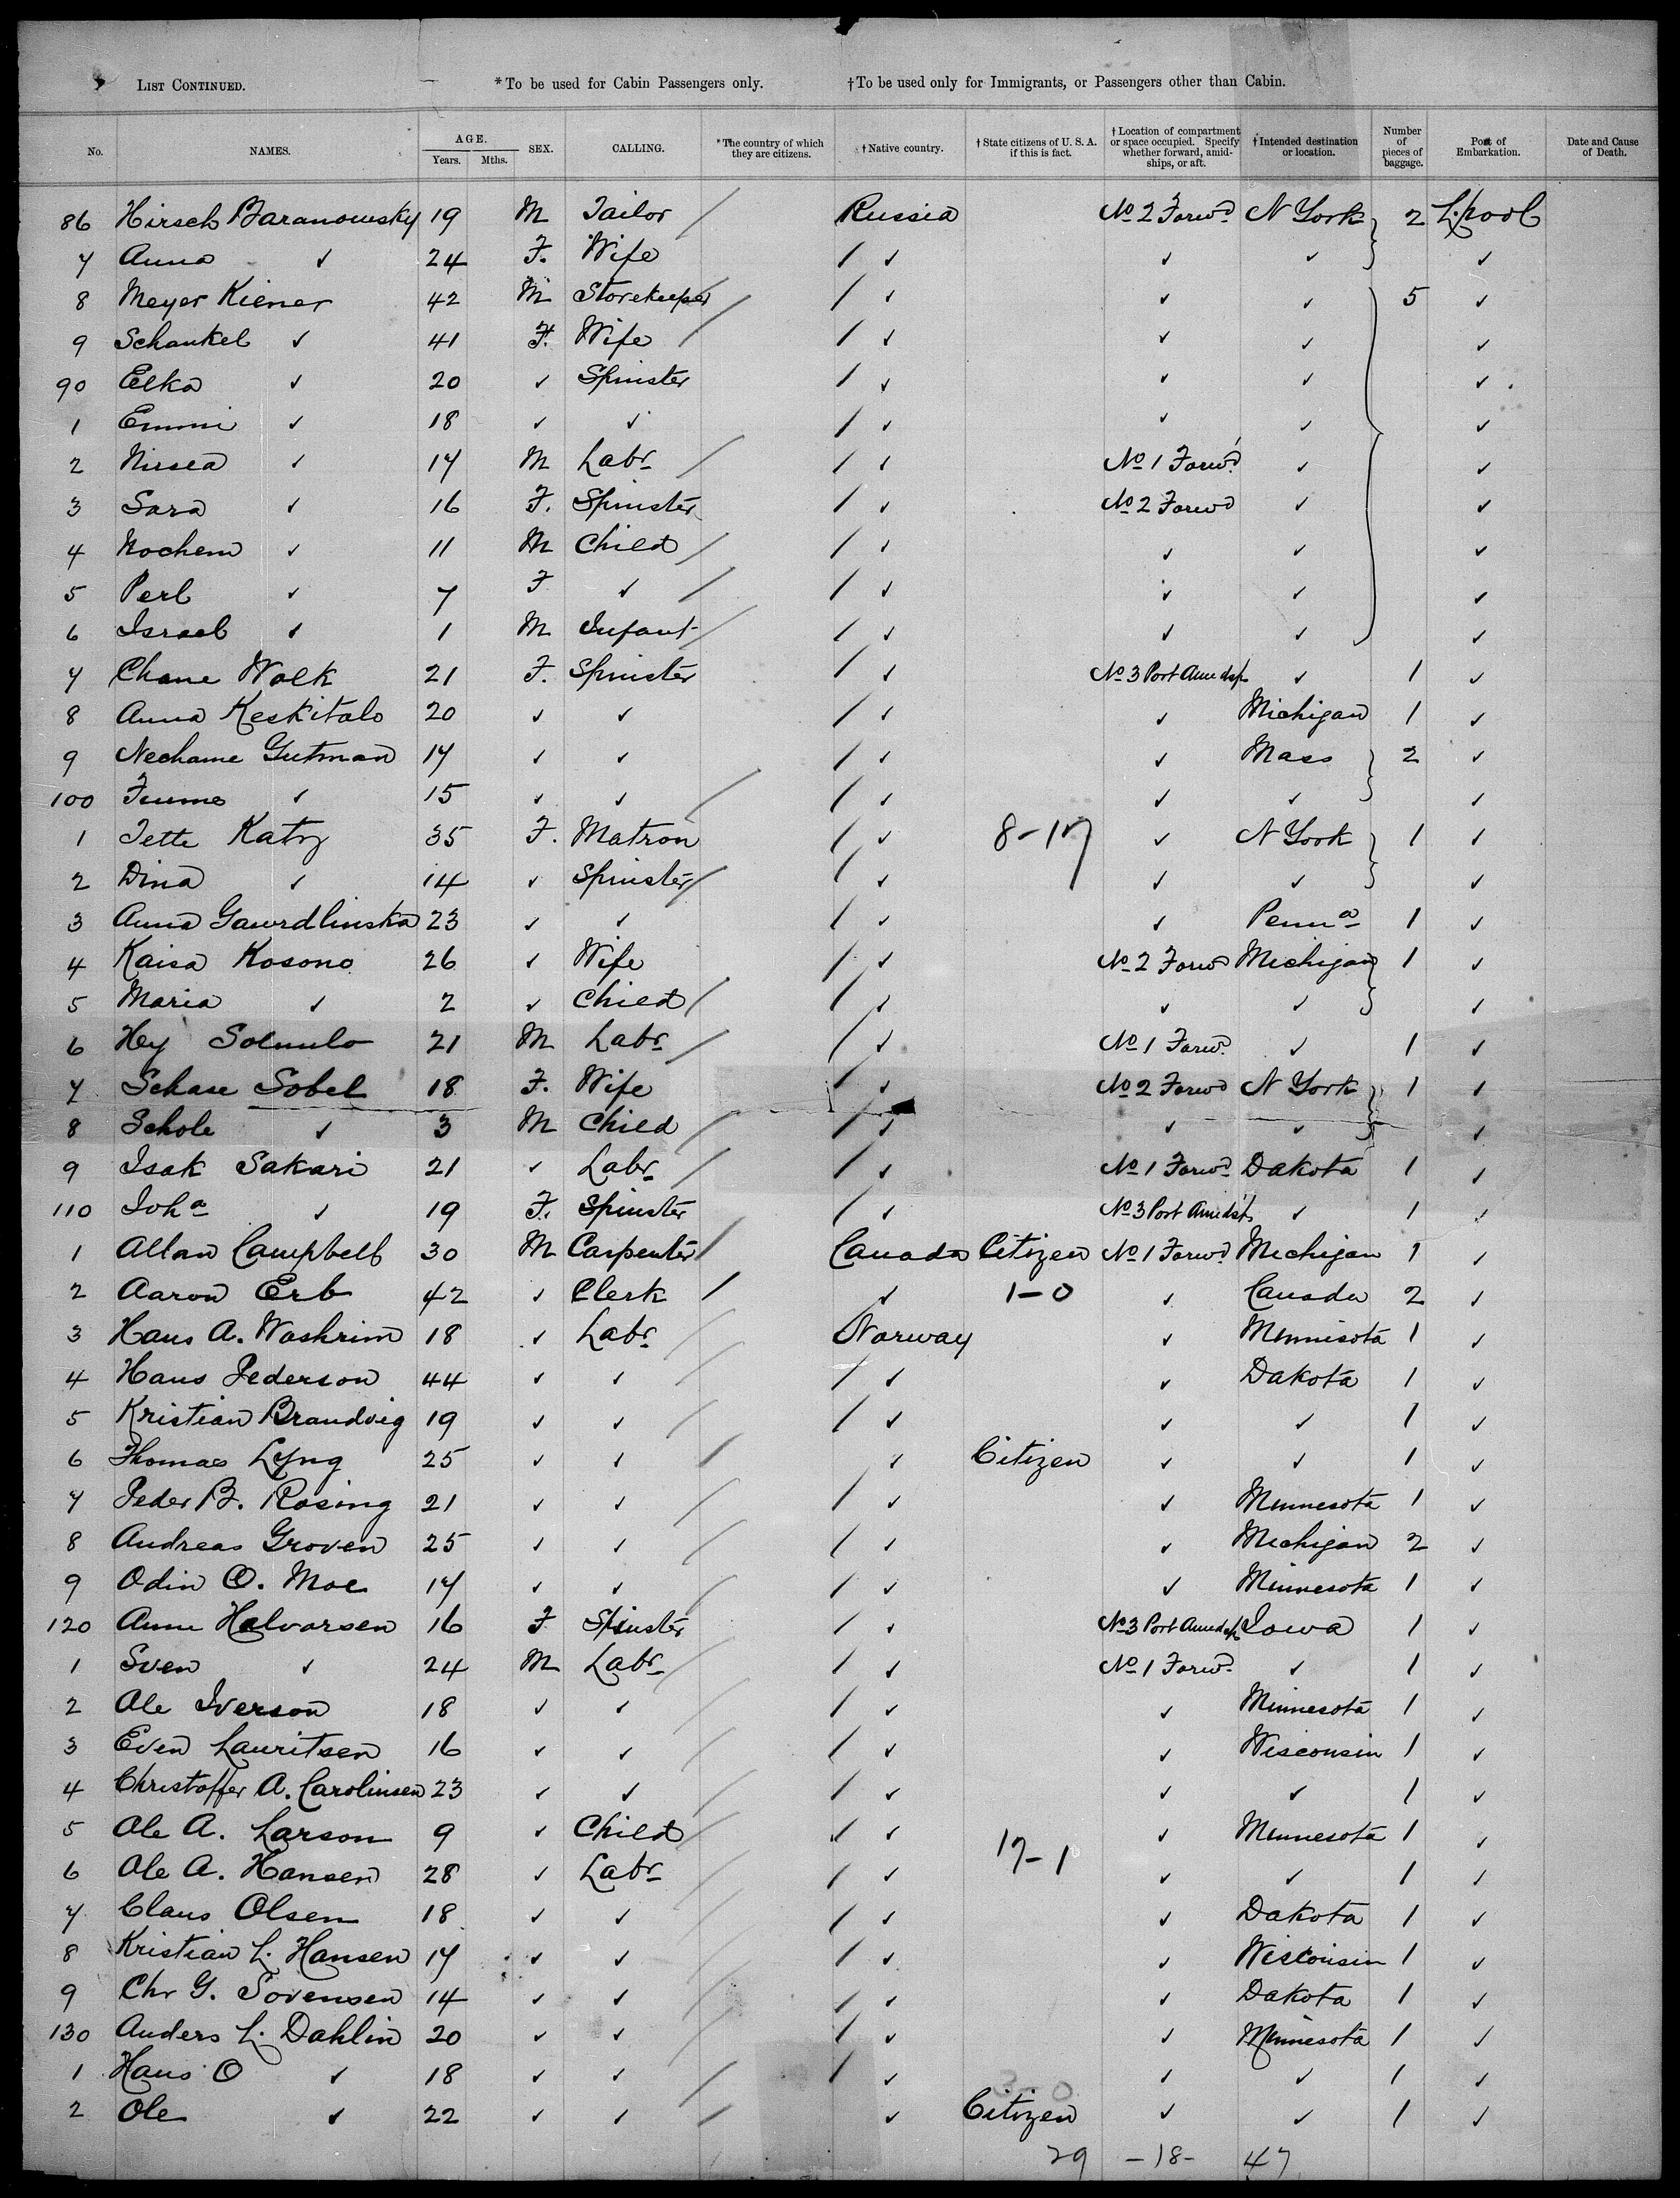 LIST CONTINUED. *To be used for Cabin Passengers only. †To be used only for Immigrants, or Passengers other than Cabin.
No. NAMES. AGE. Years. Mths. SEX. CALLING. *The country of which they are citizens. †Native country. †State citizens of U. S. A. if this is fact. †Location of compartment or space occupied. Specify whether forward, amidships, or aft. †Intended destination or location. Number of pieces of baggage. Port of Embarkation. Date and Cause of Death.
86 Hirsch Baranowsky 19 M Tailor / Russia No 2 Forwd N York 2 L'pool
7 Anna ✓ 24 F. Wife / ✓ ✓ ✓ ✓
8 Meyer Kiener 42 M Storekeeper / / ✓ ✓ ✓ 5 ✓
9 Schankel ✓ 41 F. Wife / / ✓ ✓ ✓ ✓
90 Elka ✓ 20 ✓ Spinster / ✓ ✓ ✓ ✓
1 Emmi ✓ 18 ✓ ✓ / ✓ ✓ ✓ ✓
2 ✓ 17 M Labr / / ✓ No 1 Forwd ✓ ✓
3 Sara ✓ 16 F. Spinster / ✓ No 2 Forwd ✓ ✓
4 Nochem ✓ 11 M Child / / ✓ ✓ ✓ ✓
5 Perl ✓ 7 F ✓ / / ✓ ✓ ✓ ✓
6 Israel ✓ 1 M Infant / / ✓ ✓ ✓ ✓
7 Chane Wolk 21 F. Spinster / ✓ No 3 Port Amidsp ✓ 1 ✓
8 Anna Keskitalo 20 ✓ ✓ / ✓ ✓ Michigan 1 ✓
9 Nechame Gutman 17 ✓ ✓ / ✓ ✓ Mass 2 ✓
100 Frume ✓ 15 ✓ ✓ / / ✓ ✓ ✓ ✓
1 Tette Katz 35 F. Matron / ✓ 8-17 ✓ N York 1 ✓
2 Dina ✓ 14 ✓ Spinster / / ✓ ✓ ✓ ✓
3 Anna Gawrdlinska 23 ✓ ✓ / ✓ ✓ Penna 1 ✓
4 Kaisa Kosono 26 ✓ Wife / ✓ No 2 Forwd Michigan 1 ✓
5 Maria ✓ 2 ✓ Child / / ✓ ✓ ✓ ✓
6 Hey 21 M Labr / / ✓ No 1 Forwd ✓ 1 ✓
7 Schase Sobel 18 F. Wife / ✓ No 2 Forwd N York 1 ✓
8 Schole ✓ 3 M Child / / ✓ ✓ ✓ ✓
9 Isak Sakari 21 ✓ Labr / / ✓ No 1 Forwd Dakota 1 ✓
110 Joha ✓ 19 F. Spinster / ✓ No 3 Port Amidsp ✓ 1 ✓
1 Allan Campbell 30 M Carpenter / Canada Citizen No 1 Forwd Michigan 1 ✓
2 Aaron Erb 42 ✓ Clerk / ✓ 1-0 ✓ Canada 2 ✓
3 Hans A. Woshrim 18 ✓ Labr / Norway ✓ Minnisota 1 ✓
4 Hans Pederson 44 ✓ ✓ / / ✓ ✓ Dakota 1 ✓
5 Kristian Brandvig 19 ✓ ✓ / / ✓ ✓ ✓ 1 ✓
6 Thomas Lyng 25 ✓ ✓ / ✓ Citizen ✓ ✓ 1 ✓
7 Peder B. Rosing 21 ✓ ✓ / / ✓ ✓ Minnesota 1 ✓
8 Andreas Groven 25 ✓ ✓ / / ✓ ✓ Michigan 2 ✓
9 Odin O. Moe 17 ✓ ✓ / / ✓ ✓ Minnesota 1 ✓
120 Anne Halvorsen 16 F Spinster / ✓ No 3 Port Amidsp Iowa 1 ✓
1 Sven ✓ 24 M Labr / / ✓ No 1 Forwd ✓ 1 ✓
2 Ole Iverson 18 ✓ ✓ / / ✓ ✓ Minnesota 1 ✓
3 Even Lauritsen 16 ✓ ✓ / / ✓ ✓ Wisconsin 1 ✓
4 Christoffer A. Carolinsen 23 ✓ ✓ / / ✓ ✓ ✓ 1 ✓
5 Ole A. Larson 9 ✓ Child / / ✓ ✓ Minnesota 1 ✓
6 Ole A. Hansen 28 ✓ Labr / / ✓ 17-1 ✓ ✓ 1 ✓
7 Claus Olsen 18 ✓ ✓ / / ✓ ✓ Dakota 1 ✓
8 Kristian L. Hansen 17 ✓ ✓ / / ✓ ✓ Wisconsin 1 ✓
9 Chr G. Sorensen 14 ✓ ✓ / / ✓ ✓ Dakota 1 ✓
130 Anders L. Dahlin 20 ✓ ✓ / / ✓ ✓ Minnesota 1 ✓
1 Hans O ✓ 18 ✓ ✓ / / ✓ ✓ ✓ 1 ✓
2 Ole ✓ 22 ✓ ✓ / ✓ 3-0 Citizen ✓ ✓ 1 ✓
29 -18- 47